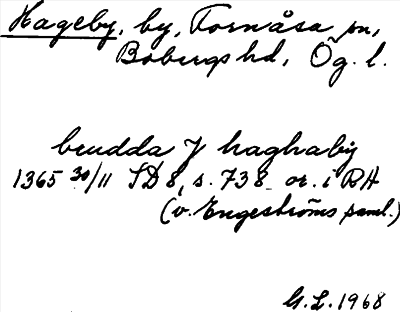 Hageby, by, Fornåsa sn,
Bobergs hd, Ög. l.
brudda J haghaby
1365 30/11 SD 8, s. 738 or. i RA
(v. Engeströms saml.)
G.L. 1968